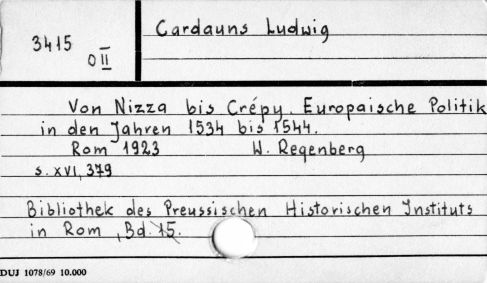 Cardauns Ludwig
3415
O II
Von Nizza bis Crépy. Europaische Politik
in den Jahren 1534 bis 1544.
Rom 1923 W. Regenberg
s. XVI, 379
Bibliothek des Preussischen Historischen Instituts
in Rom, Bd. 15.
DUJ 1078/69 10.000